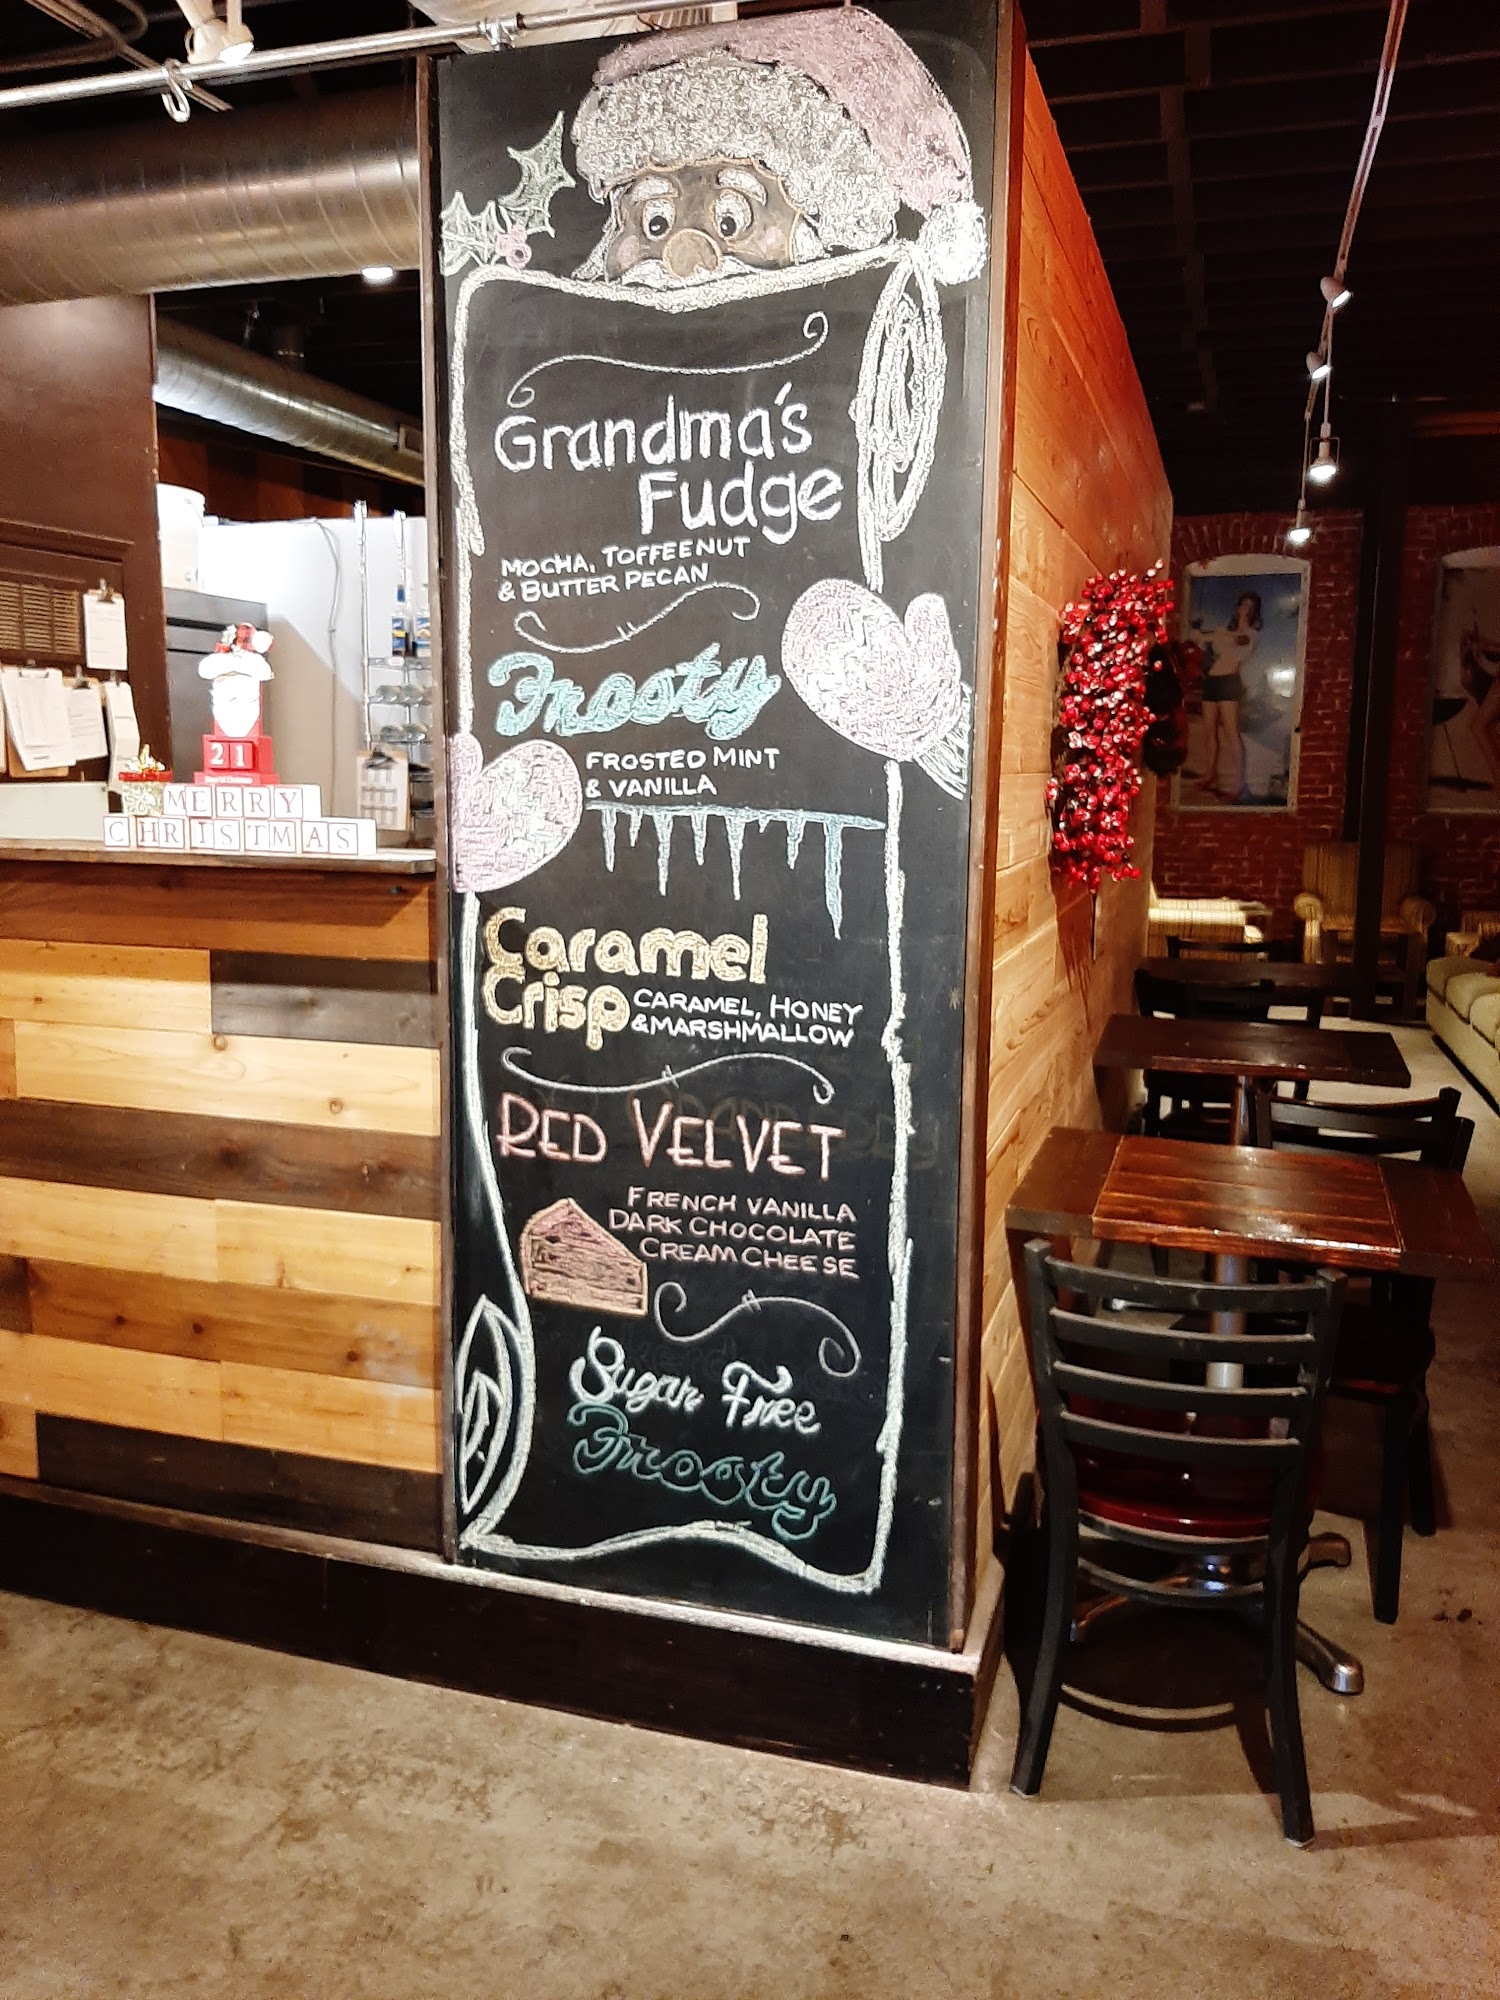 Grandma's
Fudge
MOCHA, TOFFEENUT
& BUTTER PECAN
Frosty
FROSTED MINT
& VANILLA
Caramel
Crisp
CARAMEL, HONEY
& MARSHMALLOW
RED VELVET
FRENCH VANILLA
DARK CHOCOLATE
CREAM CHEESE
Sugar Free
Frosty
21
MERRY
CHRISTMAS